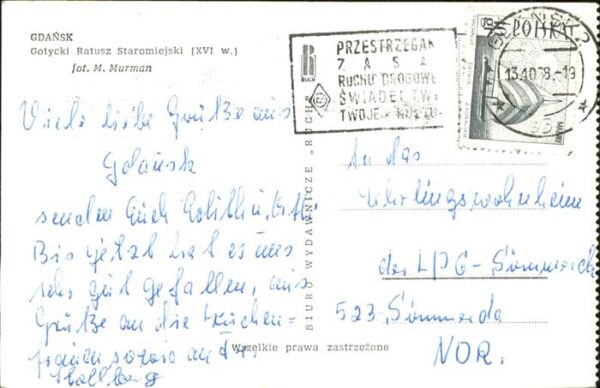 GDAŃSK
Gotycki Ratusz Staromiejski (XVI w.)
fot. M. Murman
Viele liebe Grüße aus
Gdańsk
senden Euch
Bis jetzt hat es uns
sehr gut gefallen,
Grüße an die Küchen=
frauen sowie an
BIURO WYDAWNICZE „RUCH"
Wszelkie prawa zastrzeżone
RUCH
PRZESTRZEGAN
ZASA
RUCHU DROGOWE
ŚWIADEC TWE
TWOJEJ
POLSKA
13.10.68.-19
An das
Lehrlingswohnheim
der LPG - Sömmerda
523 - Sömmerda
NOR.